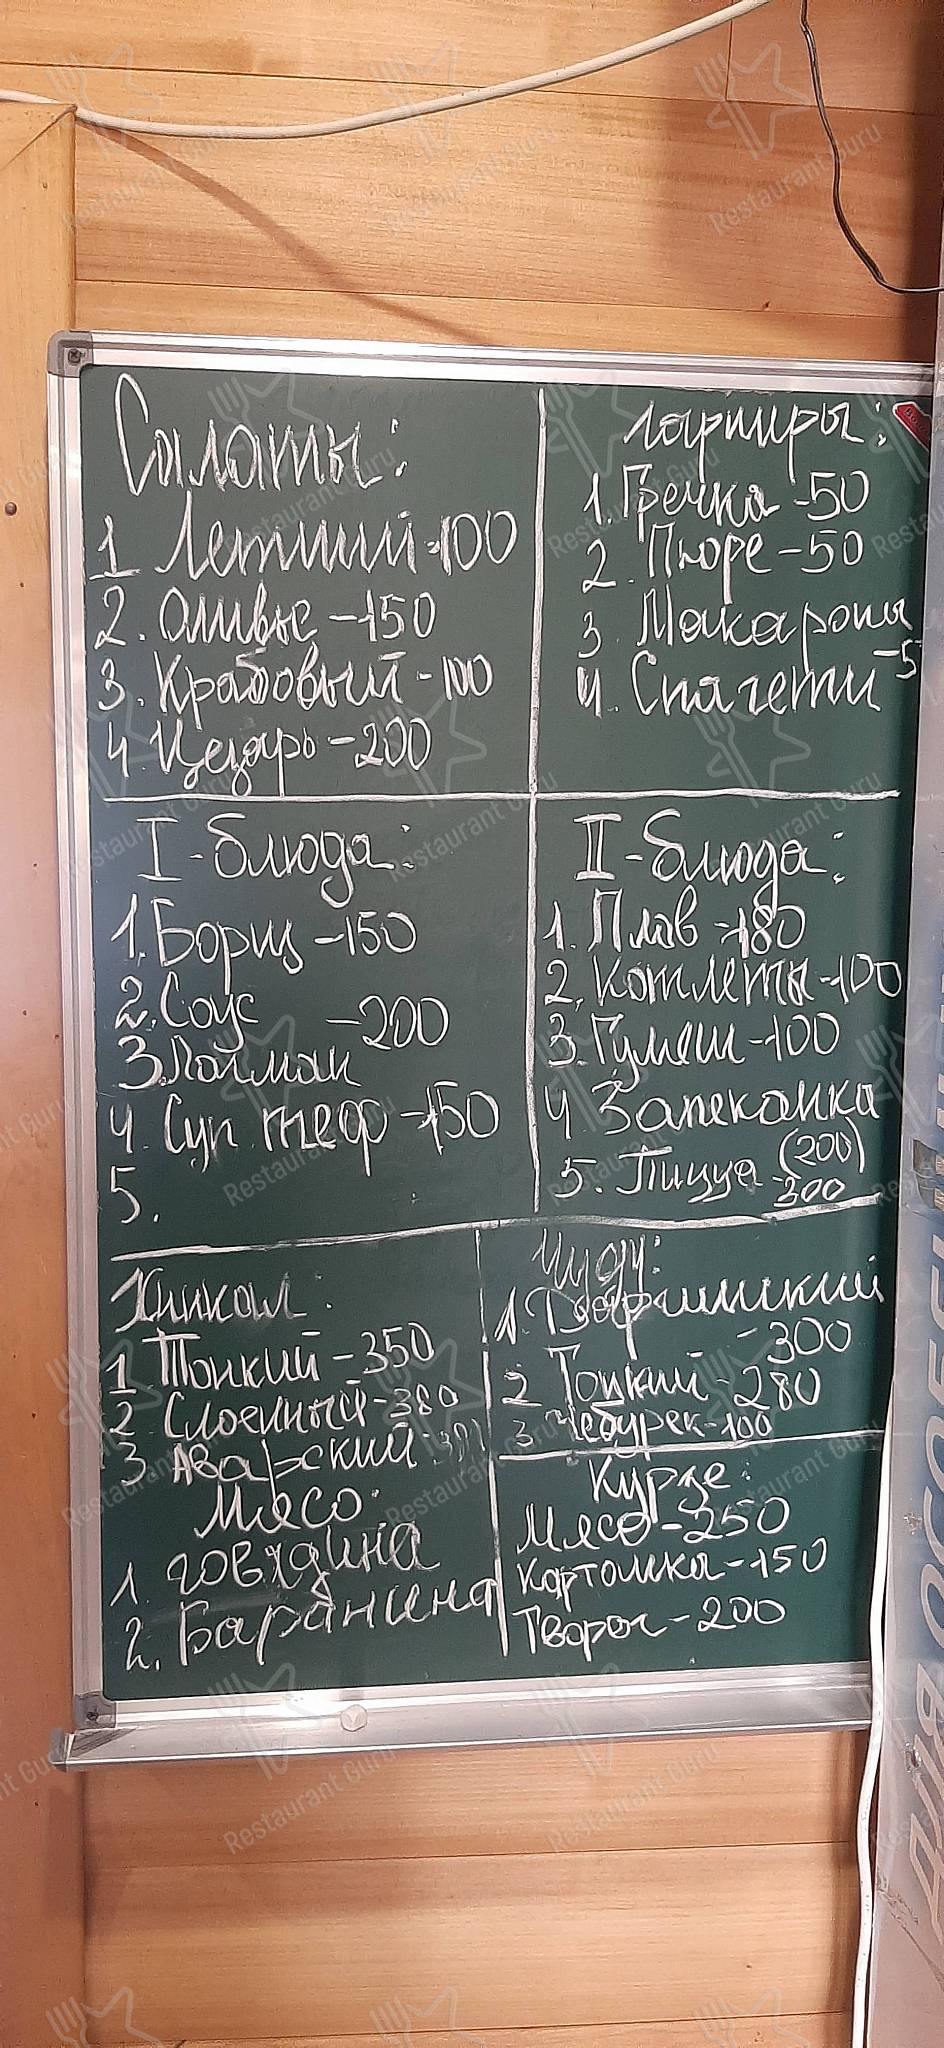 Салаты:
1 Летний-100
2. Оливье-150
3. Крабовый-100
4. Цезарь-200
Гарниры:
1. Гречка-50
2. Пюре-50
3 Макароны
-5
4. Спагети
I-блюда:
1. Борщ-150
2. Соус
-200
3. Лагман
4. Суп теф-150
5.
II-блюда:
1. Плов-180
2. Котлеты-100
3. Гуляш-100
4 Запеканка
(200)
5. Пицца-300
Хинкал:
1 Тонкий-350
2 Слоенный-380
3 Аварский
Мясо:
1. говядина
2. Баранина
Чуду:
1.
-300
2 Тонкий-280
3 Чебурек-100
Курзе:
Мясо-250
Картошка-150
Творог-200
Restaurant Guru